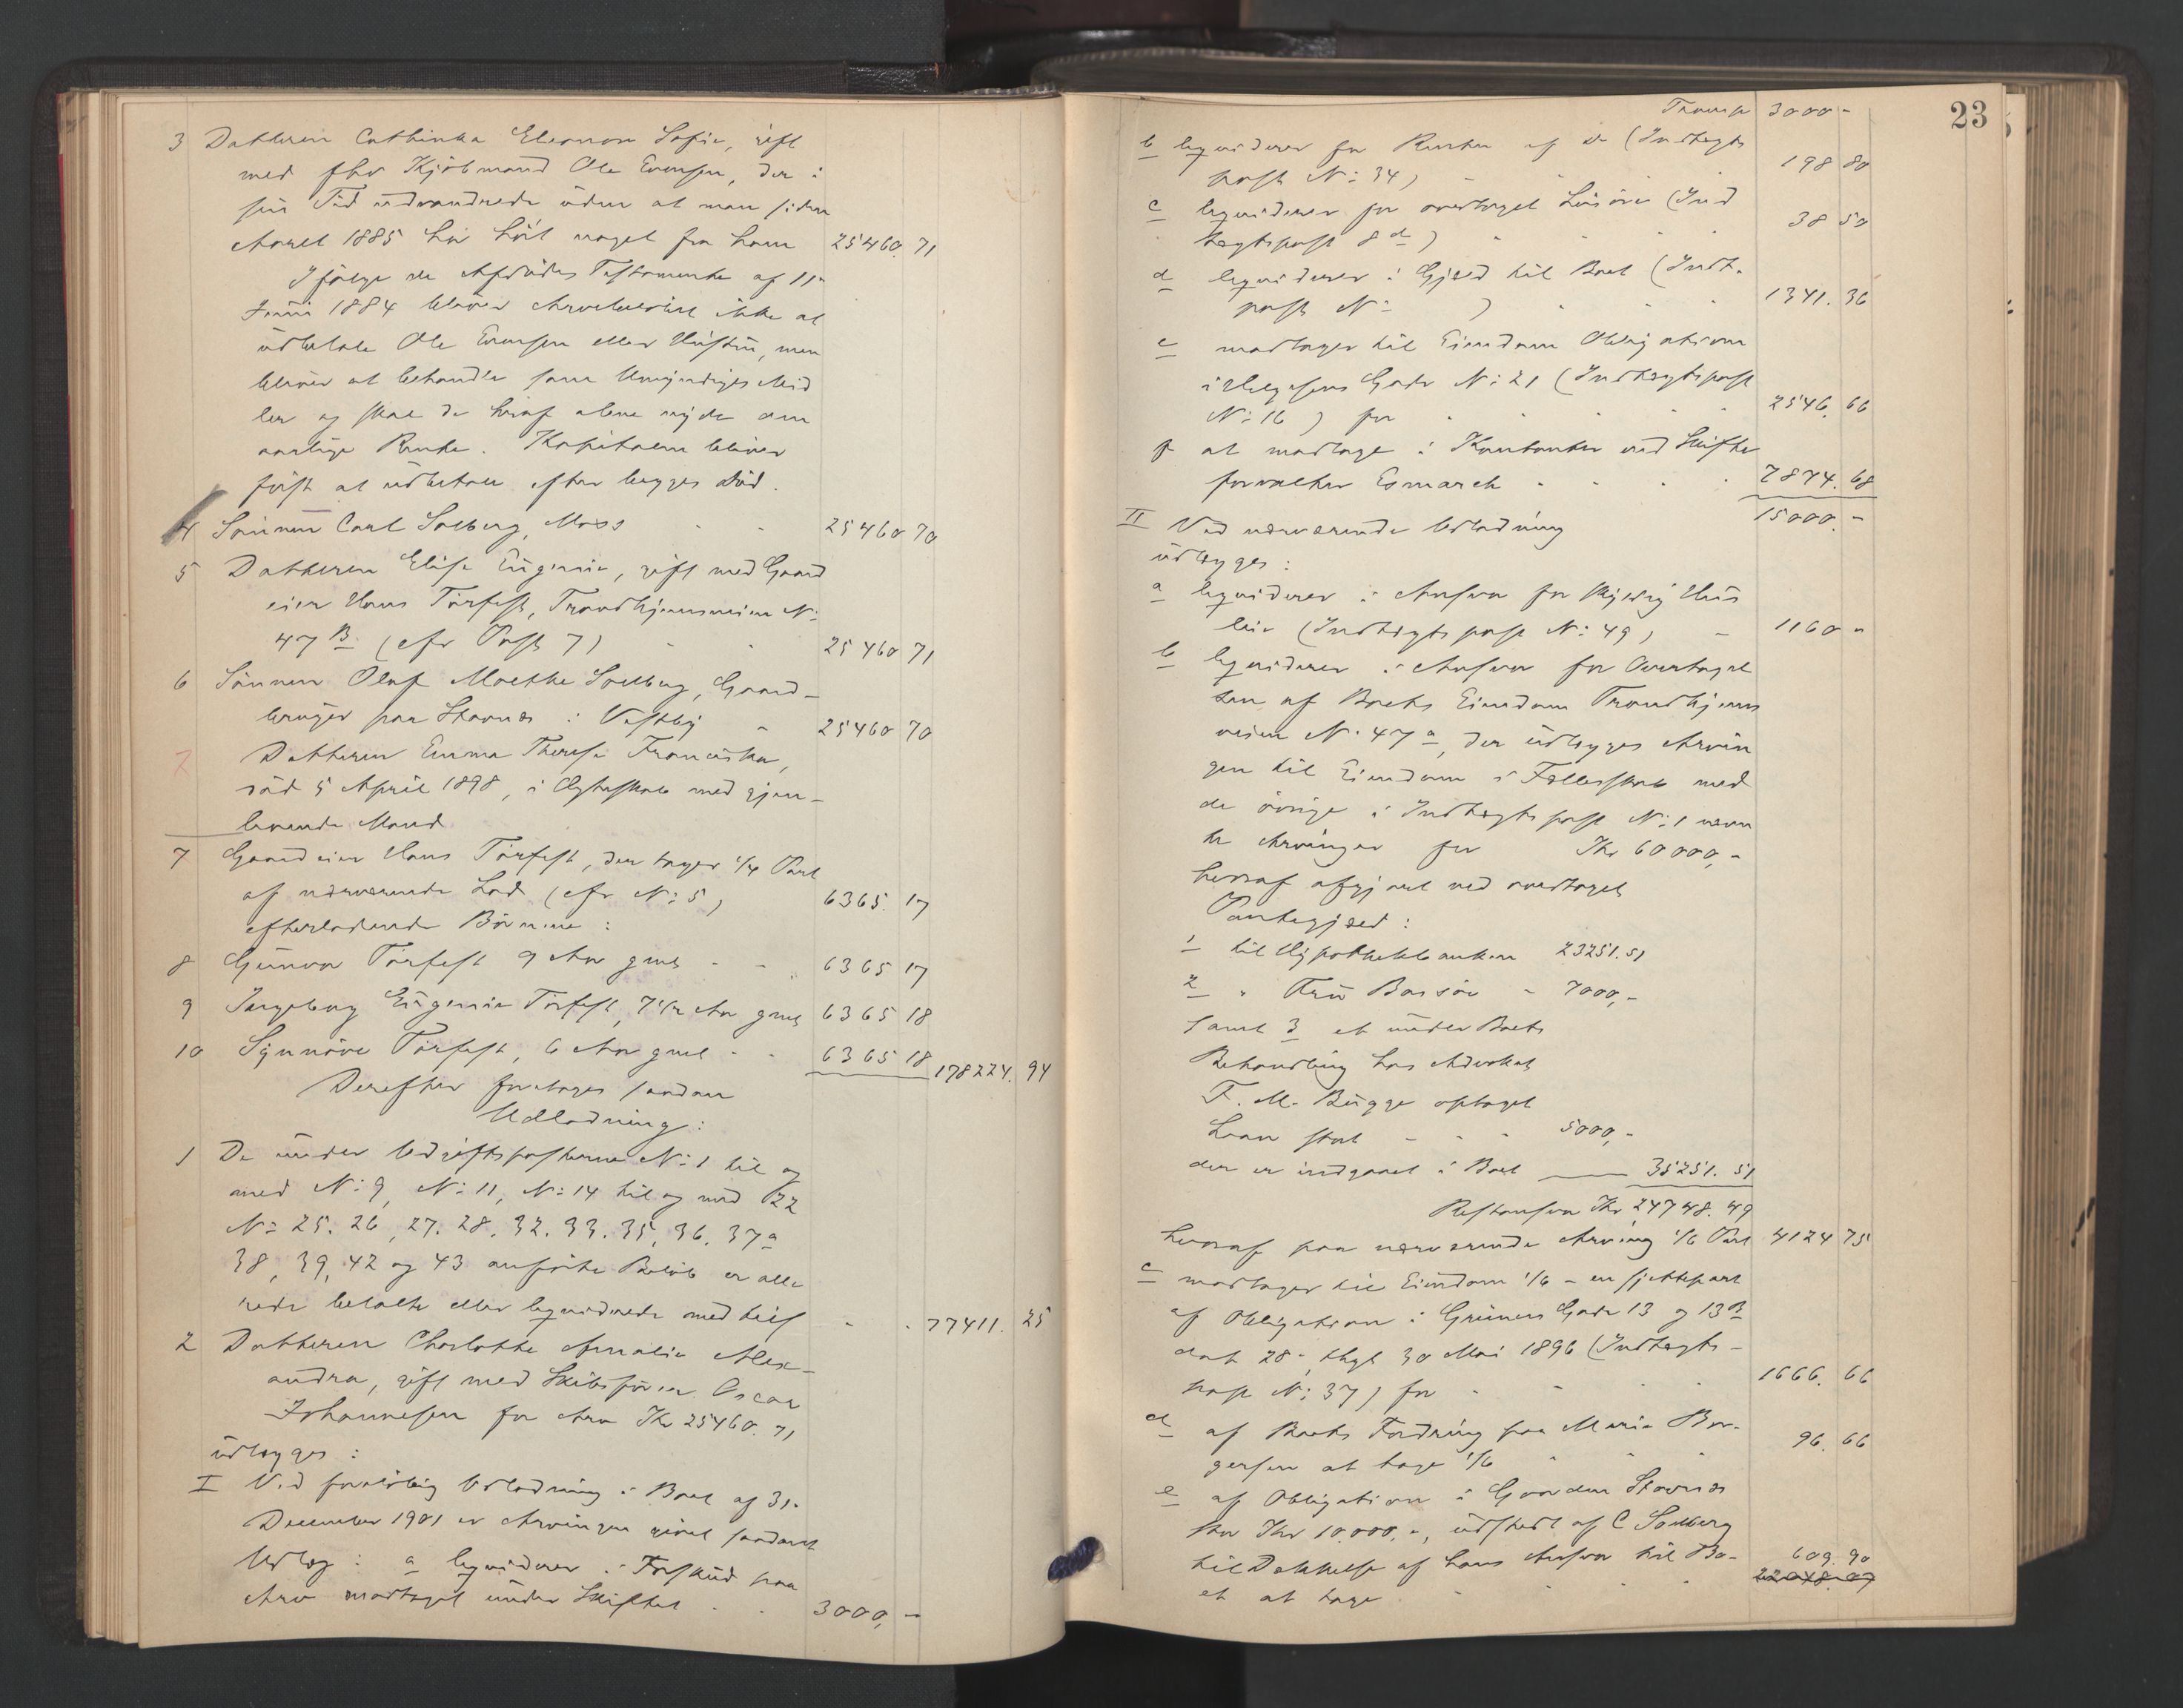 3 Datteren Cathinka Eleonora Sofie, gift
med fhv Kjøbmand Ole Evensen, der i
sin Tid udvandrede uden at man siden
Aaret 1885 har hørt noget fra ham 25460. 71
Ifølge de Afdødes Testamente af 11-
Juni 1884 bliver Arvebeløbet ikke at
udbetale Ole Evensen eller Hustru, men
bliver at behandle som Umyndiges Mid
ler og skal de heraf alene nyde den
aarlige Rente. Kapitalen bliver
først at udbetale efter begges Død.
4 Sønnen Carl Solberg, Moss - - 25460 70
5 Datteren Elise Eugenie, gift med Gaard
eier Hans Tørfest, Trondhjemsveien N:
47 B (cfr Post 7) - - 25460 71
6 Sønnen Olaf Moethe Solberg, Gaard-
bruger paa Stavnes i Vestby - 25460 70
7 Datteren Emma Therese Franciska,
død 5 April 1898, i Ægteskab med gjen-
levende Mand
7 Gaardeier Hans Tørfest, der tager 1/4 Part
af nærværende Lod (cfr N: 5) 6365. 17
efterladende Børnene:
8 Gunvor Tørfest 9 Aar gml - - 6365 17
9 Ingeborg Eugenie Tørfest, 7 1/2 Aar gml 6365 18
10 Synnøve Tørfest, 6 Aar gml - - 6365 18 178224. 94
Derefter foretages saadan
Udlodning:
1 De under Udgiftsposterne N: 1 til og
med N: 9, N: 11, N: 14 til og med 22
N: 25. 26, 27. 28. 32. 33. 35, 36. 37 a
38, 39, 42 og 43 anførte Beløb er alle
rede betalte eller liquiderede med tils - - 77411. 25
2 Datteren Charlotte Amalie Alex-
andra, gift med Skibsfører Oscar
Johannesen for Arv Kr 25460. 71
udlægges:
I Ved foreløbig Udlodning i Boet af 31-
December 1901 er Arvingen givet saadant
Udlæg: a liquiderer i Forskud paa
Arv modtaget under Skiftet - - 3000, -
23
Transp 3000 -
b liquiderer for Renter af do (Indtægts
post N: 34) - - - 198 80
c liquiderer for overtaget Løsøre (Ind
tægtspost 8 d) - - - 38 50
d liquiderer i Gjæld til Boet (Indt.
post N: ) - - - 1341. 36
e modtager til Eiendom Obligationen
i Helgesens Gade N: 21 (Indtægtspost
N: 16) for - - - 2546. 66
f at modtage i Kontanter ved Skifte
forvalter Esmarch - - - 7874. 68
15000. -
II Ved nærværende Udlodning
udlægges:
a liquiderer i Ansvar for skyldig Hus
leie (Indtægtspost N: 49) - 1160 -
b liquiderer i Ansvar for Overtagel
sen af Boets Eiendom Trondhjems
veien N: 47 a, der udlægges Arvin
gen til Eiendom i Fællesskab med
de øvrige i Indtægtspost N: 1 nævn
te Arvinger for Kr 60000, -
hvoraf afgjøres ved overtaget
Pantegjæld:
1 til Hypothekbanken 23251. 51
2 " Fru Borsøe - 7000, -
samt 3 et under Boets
Behandling hos Advokat
F. M. Bugge optaget
Laan stort - - - 5000, -
der er indgaaet i Boet 35251. 51
Restansvar Kr 24748. 49
hvoraf paa nærværende Arving 1/6 Part 4124 75
c modtager til Eiendom 1/6 - en sjettepart
af Obligation i Grüners Gade 13 og 13 B
dat 28- thgl 30 Mai 1896 (Indtægts-
post N: 37) for - - - 1666. 66
d af Boets Fordring paa Maria Bor-
gersen at tage 1/6 - - 96. 66
e af Obligation i Gaarden Stavnes
stor Kr 10.000, -, udstedt af C Solberg
til Dækkelse af hans Ansvar til Bo-
et at tage - - - 609. 90
22048. 07